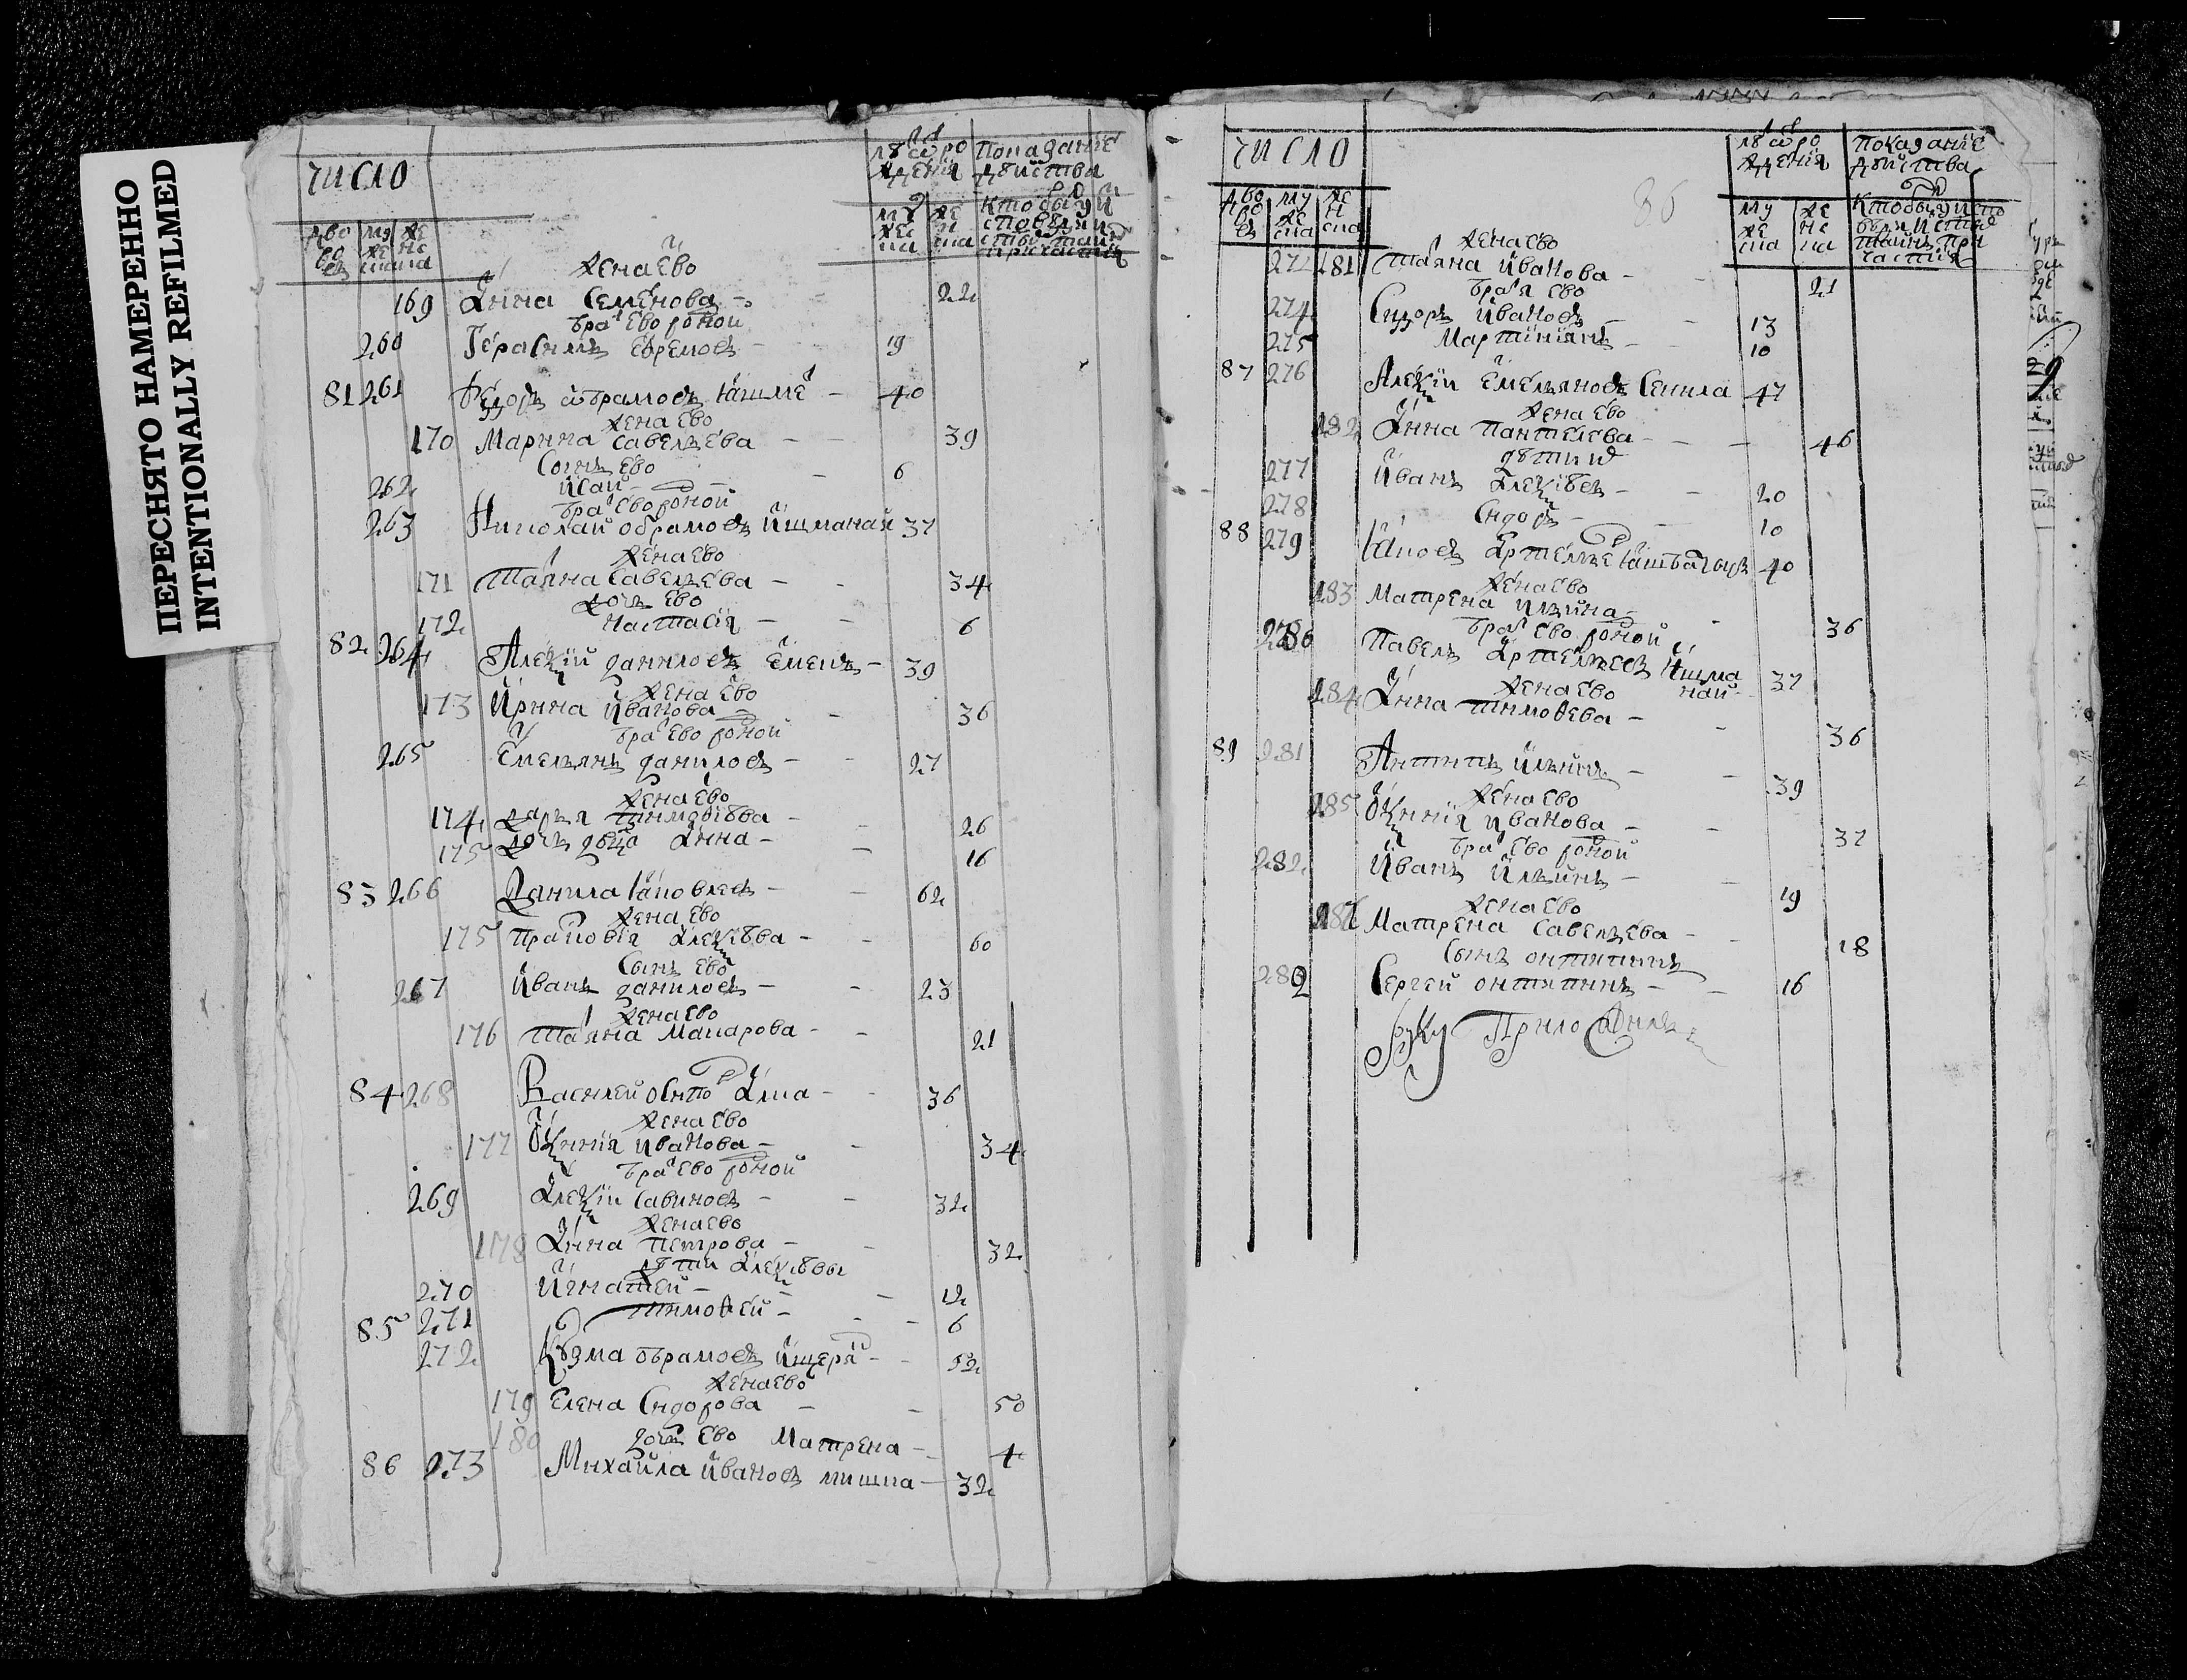 ПЕРЕСНЯТО НАМЕРЕННО
INTENTIONALLY REFILMED
число
лѣ ѿ ро
жденія
Показаніе
дѣйства
дво
ро
въ
му
же
ска
же
нс
ка
жена ево
169 Анна Семенова - 22
брат ево родной
260 Герасимъ Ефремовъ - 19
81 261 Ѳедоръ абрамовъ - 40
жена ево
170 Марина Савельева - - 39
Сынъ ево
262 Исай - 6
брат ево родной
263 Николай обрамовъ Ишманай 37
жена ево
171 Таяна Савельева - - 34
дочь ево
172 Настасія - - 6
82 264 Алексій даниловъ Емель - 39
жена ево
173 Ирина Иванова - 36
брат ево родной
265 Емельянъ даниловъ - - 27
жена ево
174 Дарья Тимофѣева - - 26
175 дочь Анна - - 16
83 266 Данила Яковлевъ - - 62
жена ево
175 Прасковія Алексѣева - - 60
Сынъ ево
267 Иванъ даниловъ - - 23
жена ево
176 Таяна Макарова - - 21
84 268 Василей Осипо - - 36
жена ево
177 Ѯинія Иванова - - 34
брат ево родной
269 Алексій Савиновъ - - 32
жена ево
178 Анна Петрова - - 32
дѣти Алексѣевы
270 Игнатей - - 12
85 271 Тимоѳей - - - 6
272 Козма обрамовъ - - 52
жена ево
179 Елена Сидорова - - 50
180 дочь ево Матрена - 4
86 273 Михайла Ивановъ мишка - 32
число
86
лѣ ѿ ро
жденія
Показаніе
дѣйства
дво
ро
въ
му
же
ска
же
н
ска
му
же
ска
же
нс
ка
жена ево
181 Таяна Иванова - - 21
братя ево
274 Сидоръ Ивановъ - - 13
275 Мартиніянъ - 10
87 276 Алексій Емельяновъ Сенила 47
жена ево
182 Анна Пантелева - - - 46
дѣти ид
277 Иванъ Алексѣевъ - - 20
278 Сидоръ - 10
88 279 Яковъ Артемье 40
жена ево
183 Матрена Ильина - - 36
брат ево родной
280 Павелъ Артемьевъ Ишма
най - 37
жена ево
184 Анна Тимоѳева - - 36
89 281 Антипъ Ильинъ - - 39
жена ево
185 Ѯинія Иванова - - 37
брат ево родной
282 Иванъ Ильинъ - - 19
жена ево
186 Матрена Савельева - - 18
Сынъ онтипинъ
Сергей онтипинъ - - 16
руку Приложилъ